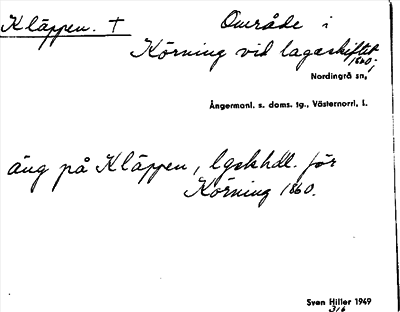 Kläppen. †
Område i
Körning vid lagaskiftet
1860;
Nordingrå sn,
Ångermanl. s. doms. tg., Västernorrl. l.
äng på Kläppen, lgskhdl. för
Körning 1860.
Sven Hiller 1949
316